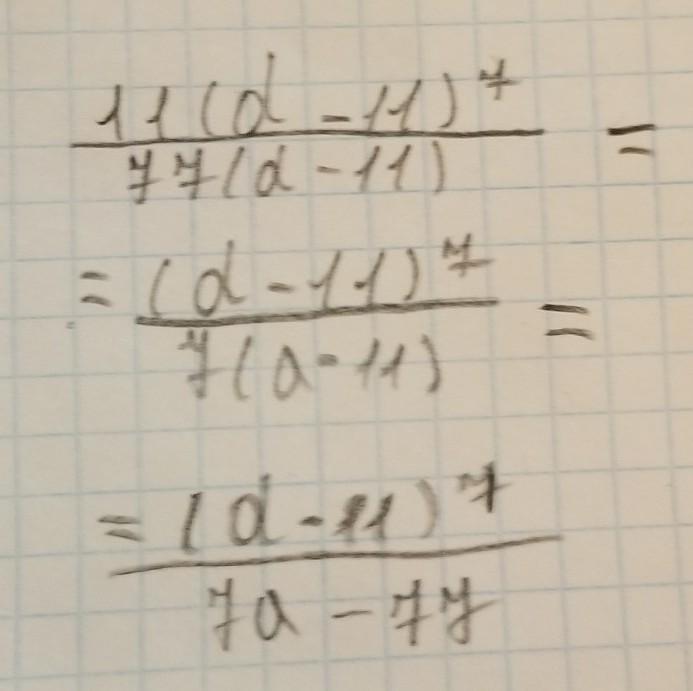 11(d-11)^7
77(d-11) =
= (d-11)^7
7(a-11) =
= (d-11)^7
7a-77